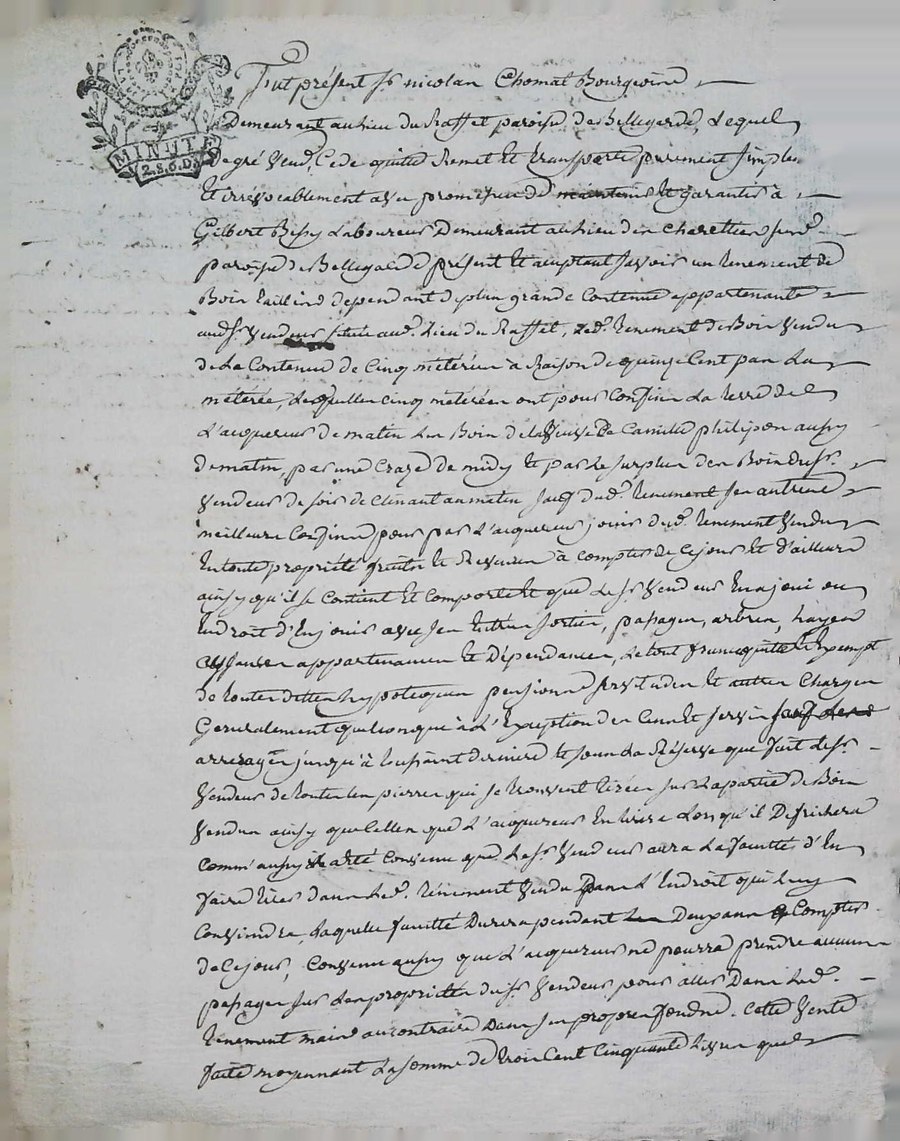 MINUTE
2.S.6.D.
Fut présent Sr nicolas Chomat Bourgeois
Demeurant au lieu du Raffet paroisse de Bellegarde, Lequel
de gré Vend, Cede quitte Remet Et transporte purement simple
Et irrévocablement avec promesse de maintenir Et garantir à
Gilbert Laboureur Demeurant au lieu des Charettier susd.
paroisse de Bellegarde présent Et acceptant savoir un tenement de
Bois taillis dependant de plus grande Contenue appartenante
aud Sr Vendeur situé aud. Lieu du Raffet, Led. tenement de Bois Vendu
de La Contenue de Cinq méterées à Raison de quinze Cent pas La
méterée, Lesquelles cinq méterées ont pour Confins La terre de
L'acquereur de matin Les Bois de la Veuve de Camille philipon aussy
de matin, par une Craze de midy Et par le surplus des Bois dud Sr.
Vendeur de soir declinant au matin sauf dud. tenement ses autres
meilleurs Confins pour par L'acquereur jouir dud. tenement Vendu
En toute propriété fruits Et Revenus à compter de Ce jour Et d'ailleurs
ainsy qu'il se Contient Et Comporte Et que Le Sr Vendeur En a joui ou
En droit d'En jouir avec ses Entrées sorties, passages, arbres, hayes
aysances appartenances Et Dépendances, Le tout franc quitte Et Exempt
de toutes dettes hypoteques pensions servitudes Et autres Charges
Generalement quelconque à L'Exception des Cens Et servis sauf
arrerages jusqu'à toussaint derniere Et sous La Réserve que fait Led Sr.
Vendeur de toutes Les pierres qui se trouvent tirées sur La partie de Bois
Vendue ainsy que Celles que L'acquereur En tirera Lorsqu'il Defrichera
Comm' aussy a été Convenu que Led Sr Vendeur aura La faculté d'En
faire tirer dans Led. ténement Vendu Dans L'Endroit qui Luy
Conviendra, Laquelle faculté Durera pendant Deux ans à Compter
de Ce jour, Convenu aussy que L'acquereur ne pourra prendre aucuns
passages sur Les proprietés dud Sr Vendeur pour aller Dans Led.
tenement mais au contraire Dans ses propres fonds. Cette Vente
faite moyennant La somme de trois Cent Cinquante Livres que